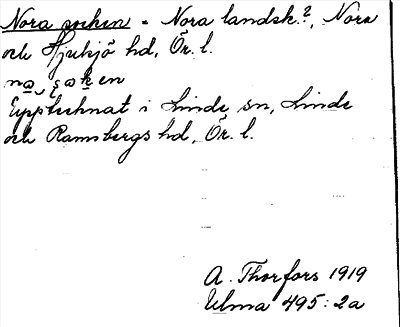 Nora socken = Nora landsk.?, Nora
och Hjulsjö hd, Ör. l.
Upptecknat i Linde sn, Linde
och Ramsbergs hd, Ör. l.
A. Thorfors 1919
Ulma 495:2a